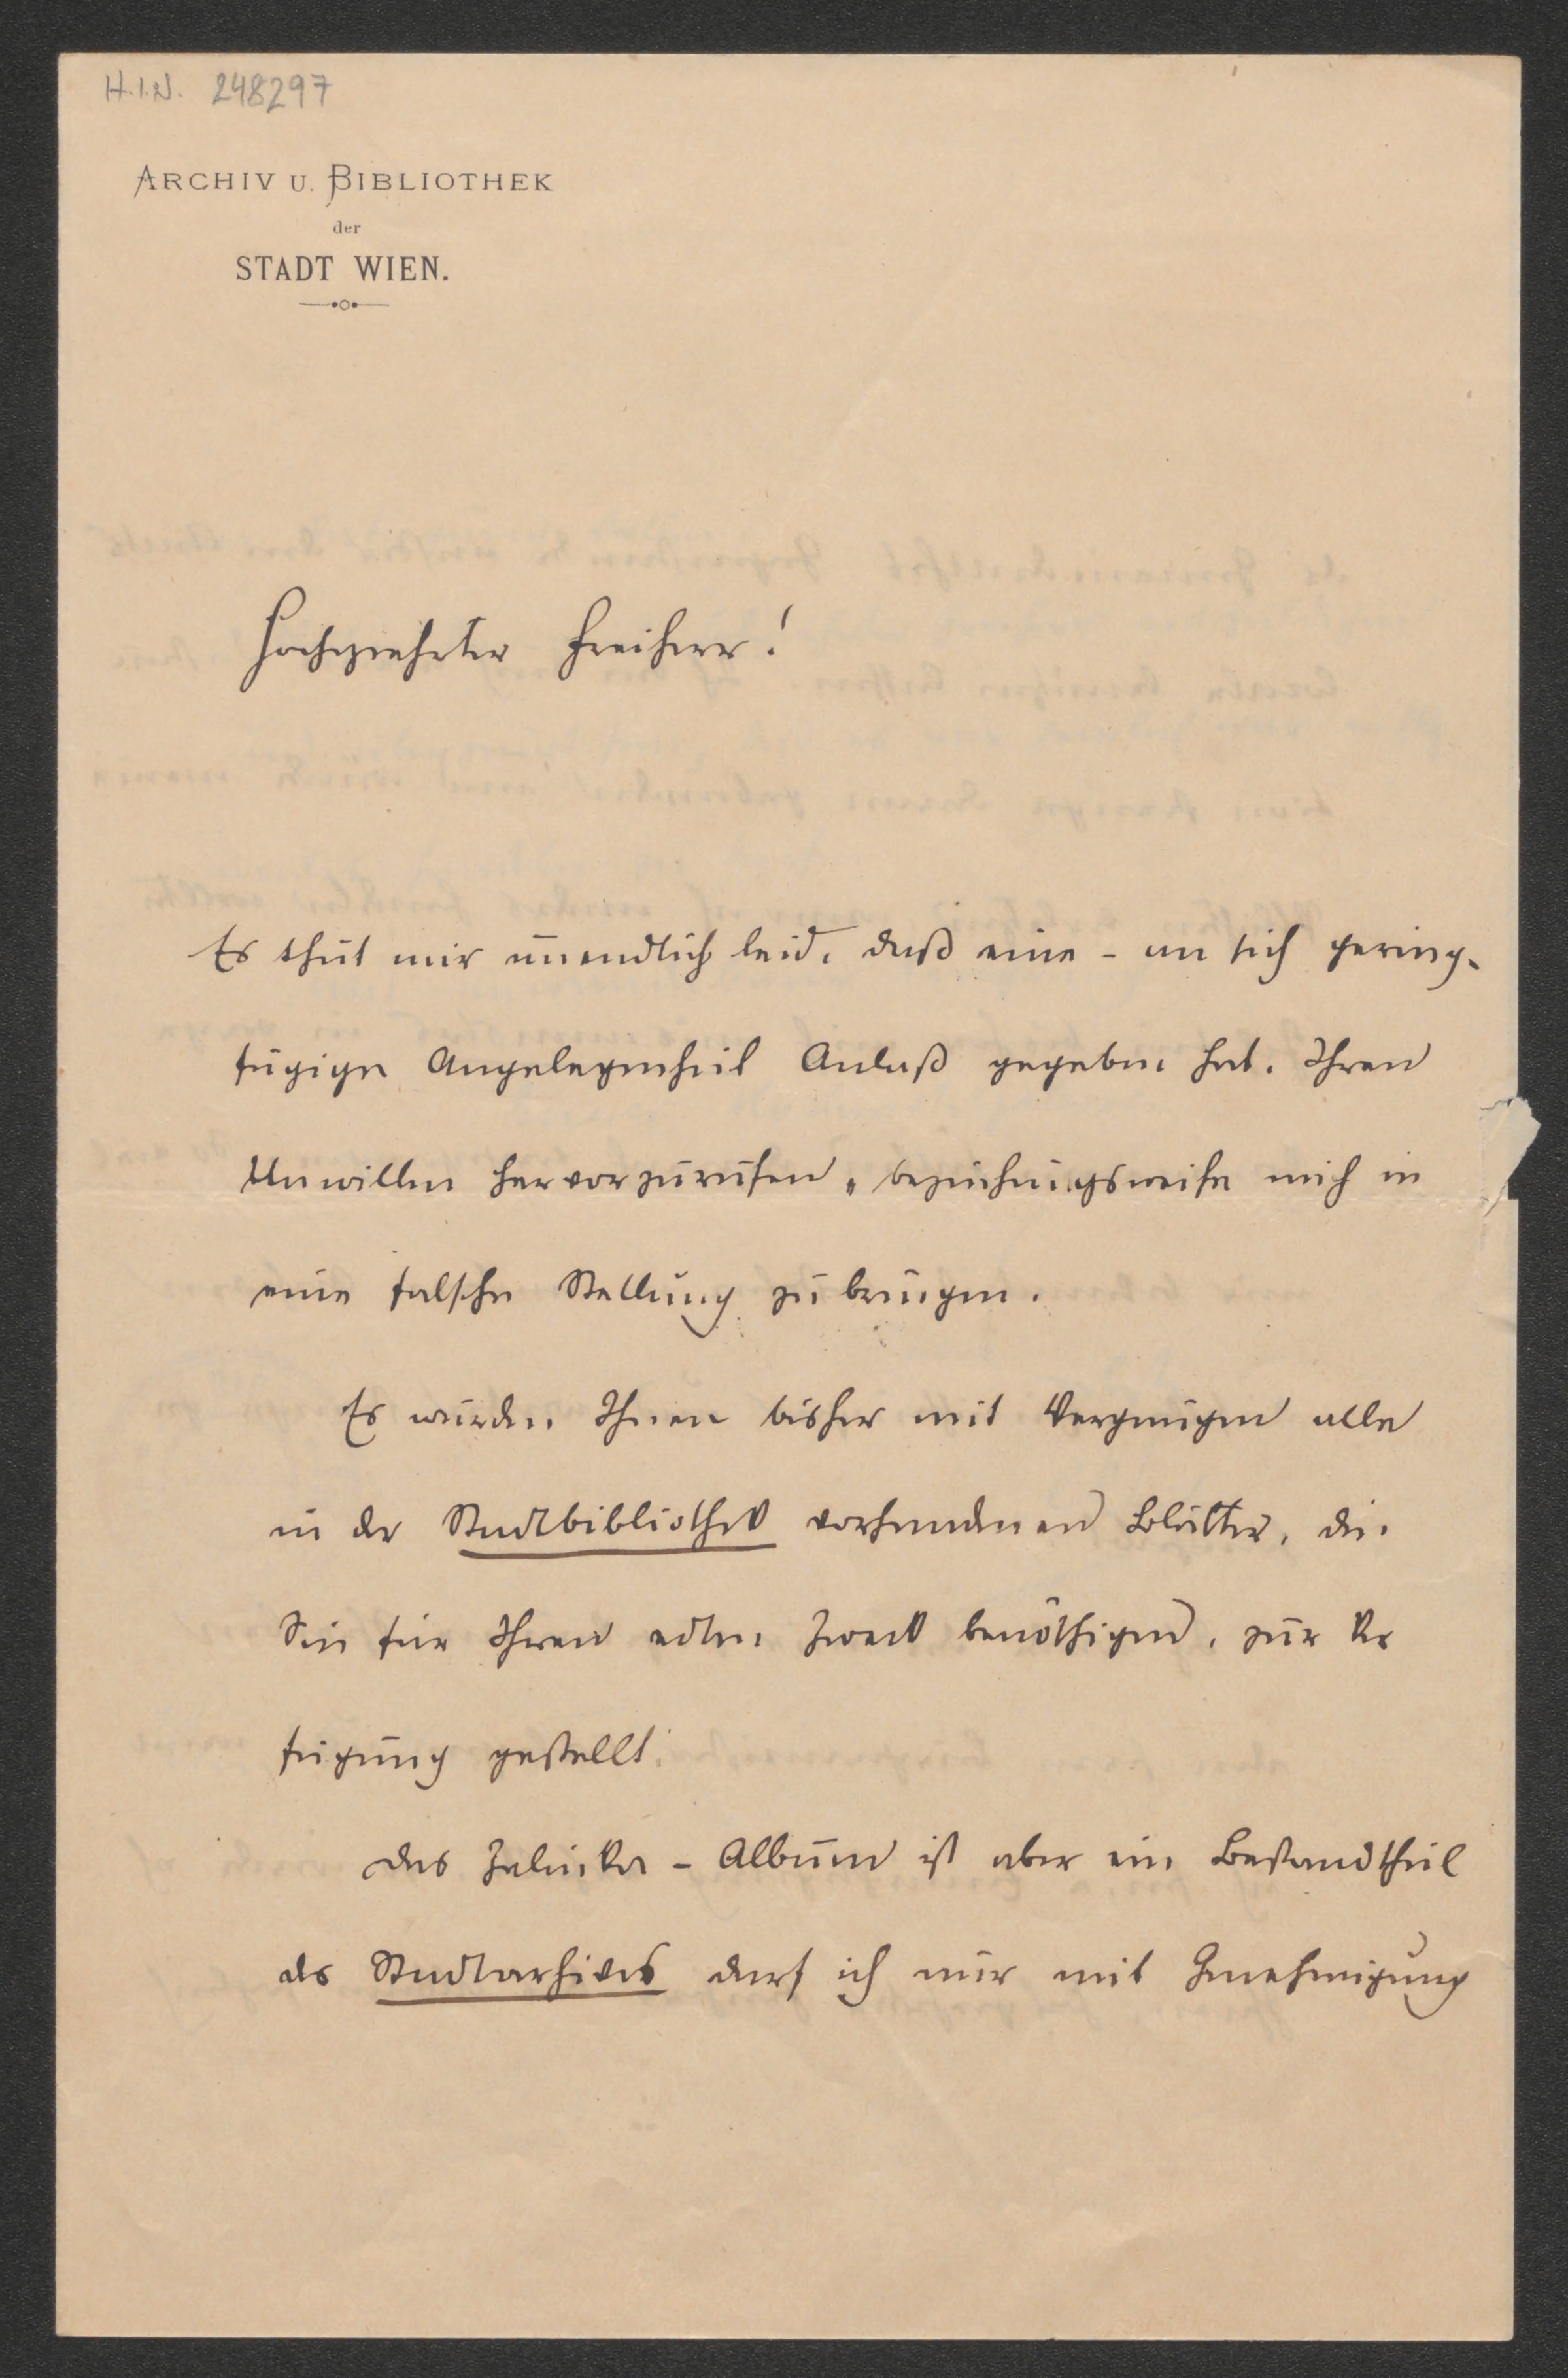 H.I.N. 248297
ARCHIV U. BIBLIOTHEK
der
STADT WIEN.
Hochgeehrter Freiherr!
Es thut mir unendlich leid, daß eine - an sich gering-
fügige Angelegenheit Anlaß gegeben hat, Ihren
Unwillen hervorzurufen, beziehungsweise mich in
eine falsche Stellung zu bringen.
Es wurden Ihnen bisher mit Vergnügen alle
in der Stadtbibliothek vorhandenen Blätter, die
Sie für Ihren edlen Zweck benöthigen, zur Ver
fügung gestellt.
Das Zelinka-Album ist aber ein Bestandtheil
des Stadtarchives darf ich nur mit Genehmigung